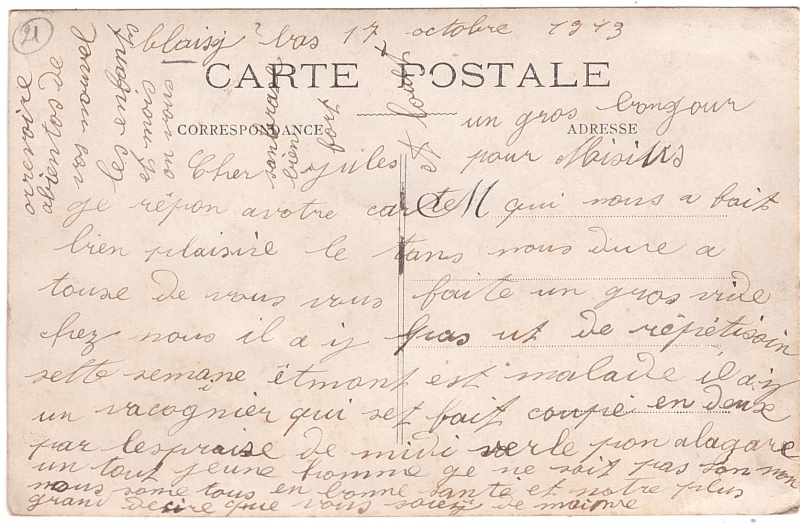 21
blaisy bas 17 octobre 1913
CARTE POSTALE
CORRESPONDANCE
ADRESSE
un gros bongour
pour
Cher Jules
ge répon avotre carte qui nous a fait
bien plaisire le tans nous dure a
touse de vous vous faite un gros vide
chez nous il a y pas ut de répétisoin
sette semane étmont est malade il a y
un vacognier qui set fait coupé en deux
par lespraise de midi verle pon alagare
un tout jeune homme ge ne sait pas son non
nous some tous en bonne santé et notre plus
grand desire que vous soiez de maime
orrevoire
abientos de
san brase
bien
fort